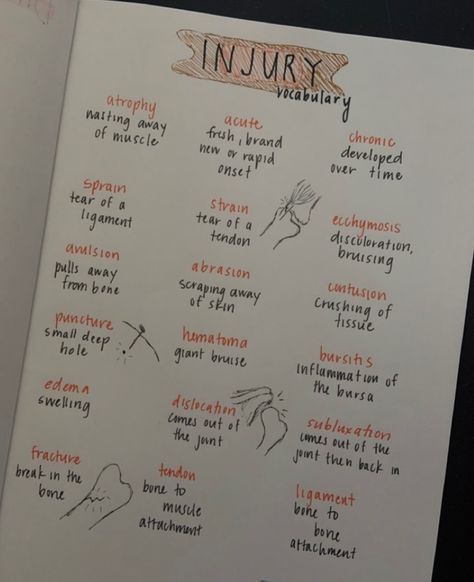 INJURY
vocabulary
atrophy
wasting away
of muscle
acute
fresh, brand
new or rapid
onset
chronic
developed
over time
sprain
tear of a
ligament
strain
tear of a
tendon
ecchymosis
discoloration,
bruising
avulsion
pulls away
from bone
abrasion
scraping away
of skin
contusion
crushing of
tissue
puncture
small deep
hole
hematoma
giant bruise
bursitis
inflammation of
the bursa
edema
swelling
dislocation
comes out of
the joint
subluxation
comes out of the
joint then back in
fracture
break in the
bone
tendon
bone to
muscle
attachment
ligament
bone to
bone
attachment